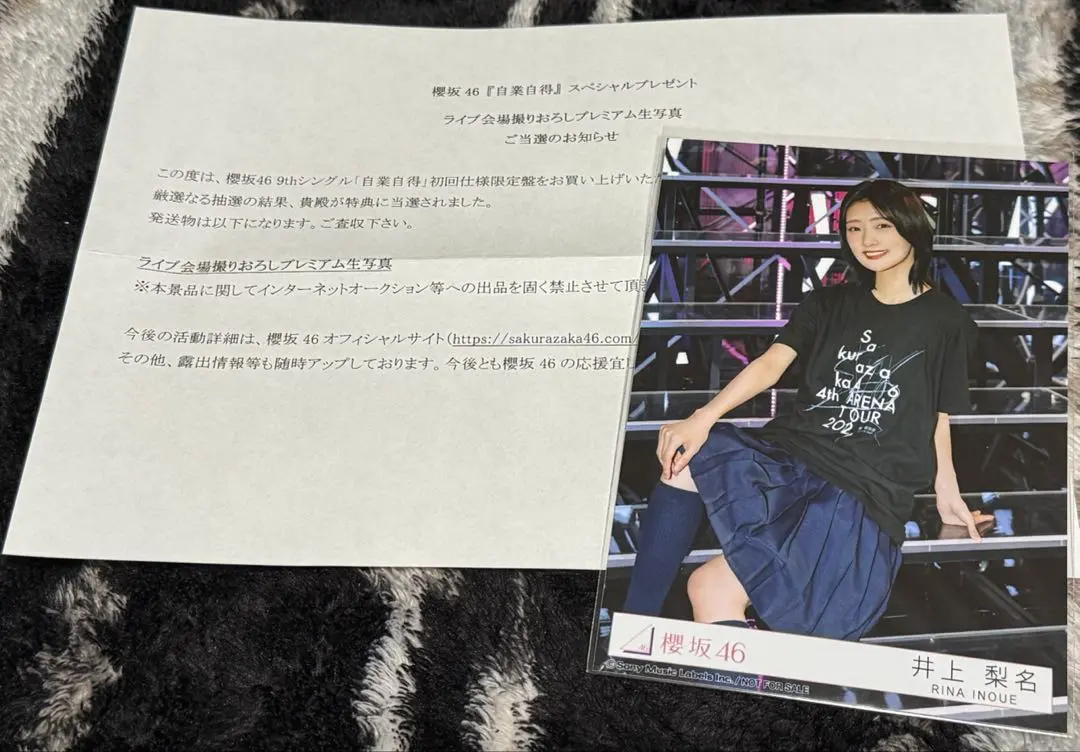 櫻坂46『自業自得』スペシャルプレゼント
ライブ会場撮りおろしプレミアム生写真
ご当選のお知らせ
この度は、櫻坂46 9thシングル「自業自得」初回仕様限定盤をお買い上げいた
厳選なる抽選の結果、貴殿が特典に当選されました。
発送物は以下になります。ご査収下さい。
ライブ会場撮りおろしプレミアム生写真
※本景品に関してインターネットオークション等への出品を固く禁止させて頂
今後の活動詳細は、櫻坂46オフィシャルサイト(https://sakurazaka46.com/
その他、露出情報等も随時アップしております。今後とも櫻坂46の応援宜
Sa
kuraza
ka46
4th ARENA
TOUR
202
櫻坂46
©Sony Music Labels Inc. / NOT FOR SALE
井上 梨名
RINA INOUE